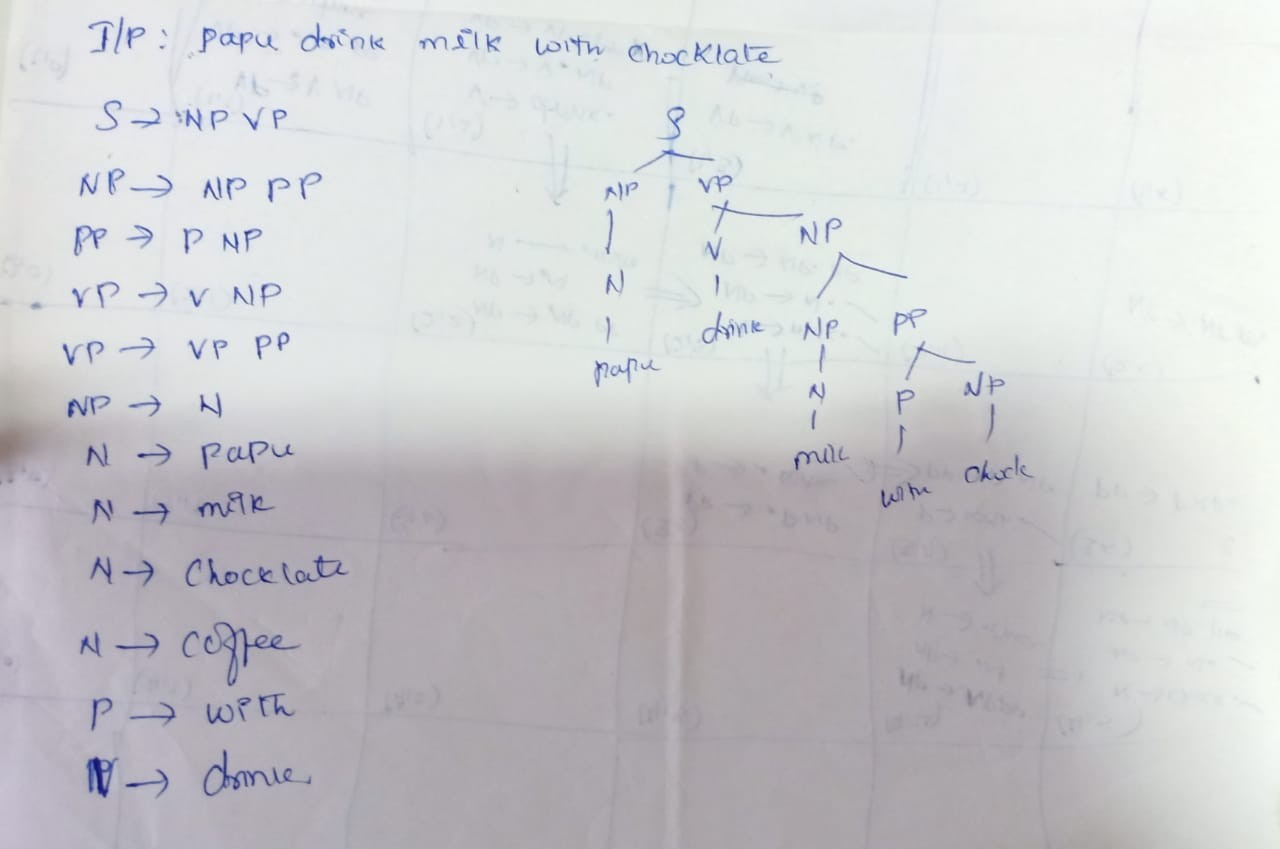 I/P: papu drink milk with chocklate
S → NP VP
NP → NP PP
PP → P NP
VP → V NP
VP → VP PP
NP → N
N → papu
N → milk
N → Chocklate
N → coffee
P → with
V →
S
NP VP
N N NP
papu drink NP PP
N P NP
milk with chock